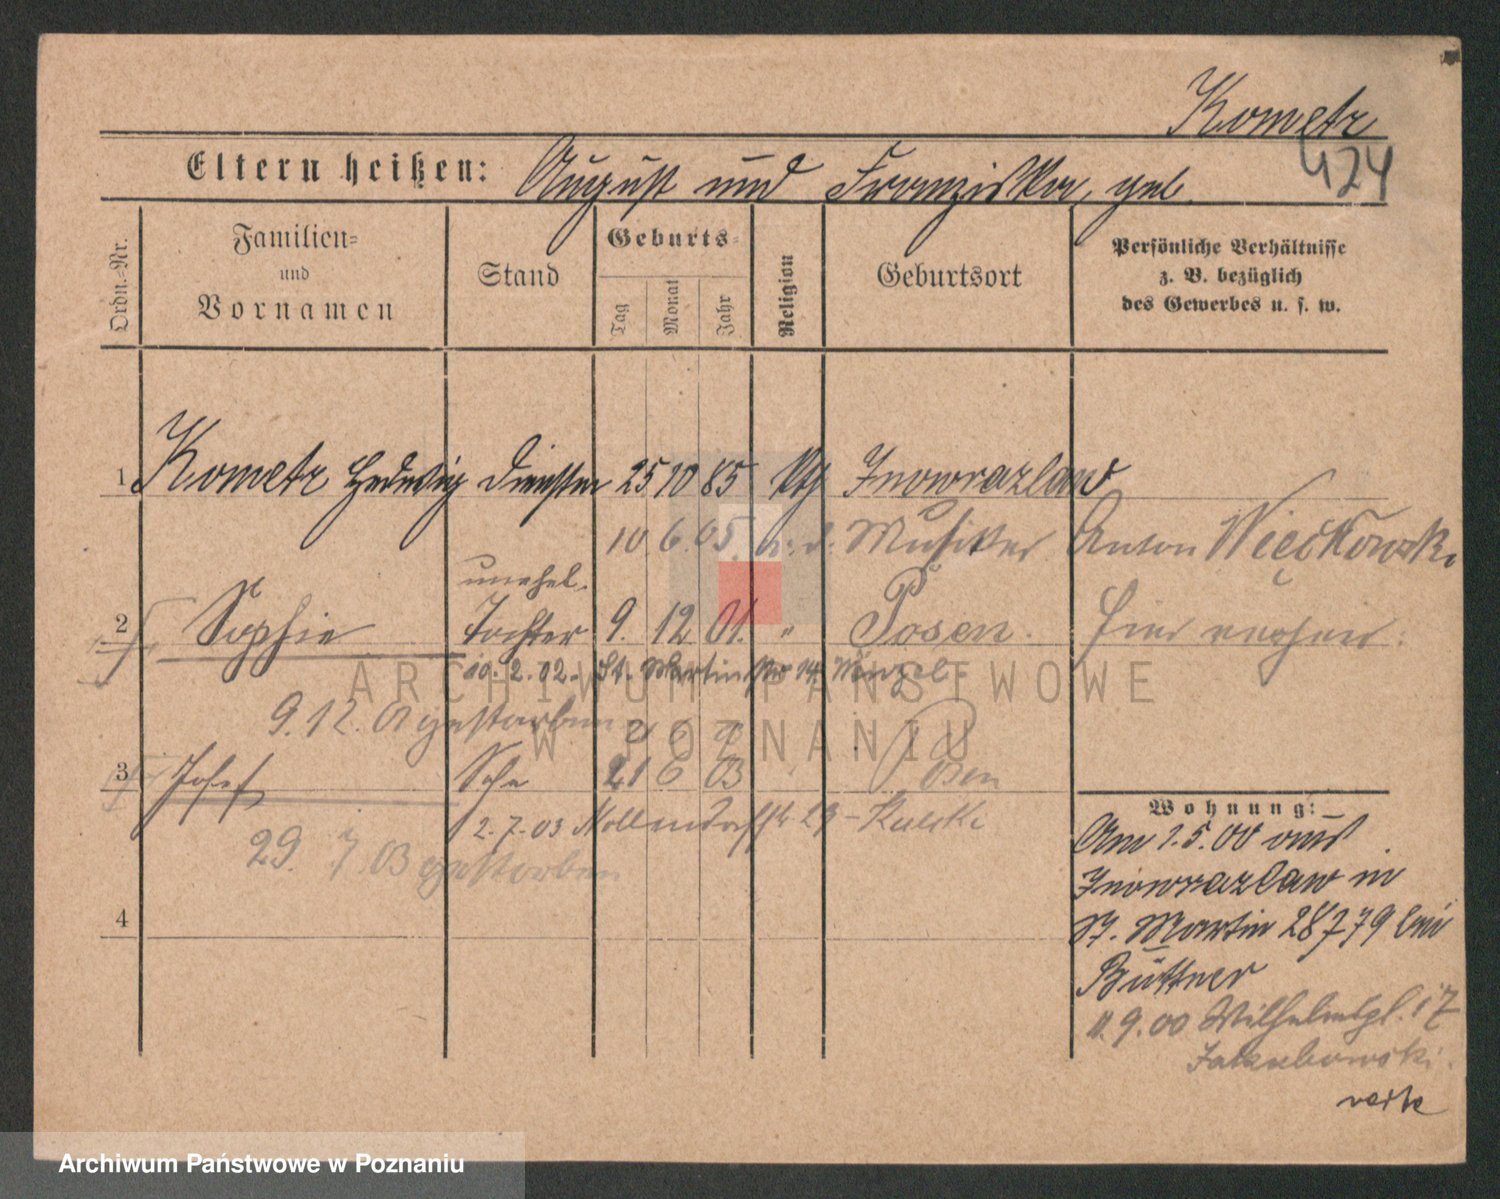 Kometz
424
Eltern heißen: August und Franziska, geb.
Ordn.-Nr.
Familien-
und
Vornamen
Stand
Geburts-
Tag
Monat
Jahr
Religion
Geburtsort
Persönliche Verhältnisse
z. B. bezüglich
des Gewerbes u. s. w.
1 Kometz Hedwig 25 10 85 kth Inowrazlaw
10. 6. 05. Musiker Anton Więckowski
unehel.
2 Sophie Tochter 9. 12 01. " Posen. hier
10. 2. 02. St. Martin No 14
9. 12. 01 gestorben
3 Josef 21 6 03 Posen
2. 7. 03 Nollendorffstr. 29
29. 7. 03 gestorben
4
Wohnung:
Am 1. 5. 00 aus
Inowrazlaw in
St. Martin 28 bei
Büttner
9. 00 Wilhelmspl. 17
Jakubowski.
verte
ARCHIWUM PAŃSTWOWE
W POZNANIU
Archiwum Państwowe w Poznaniu